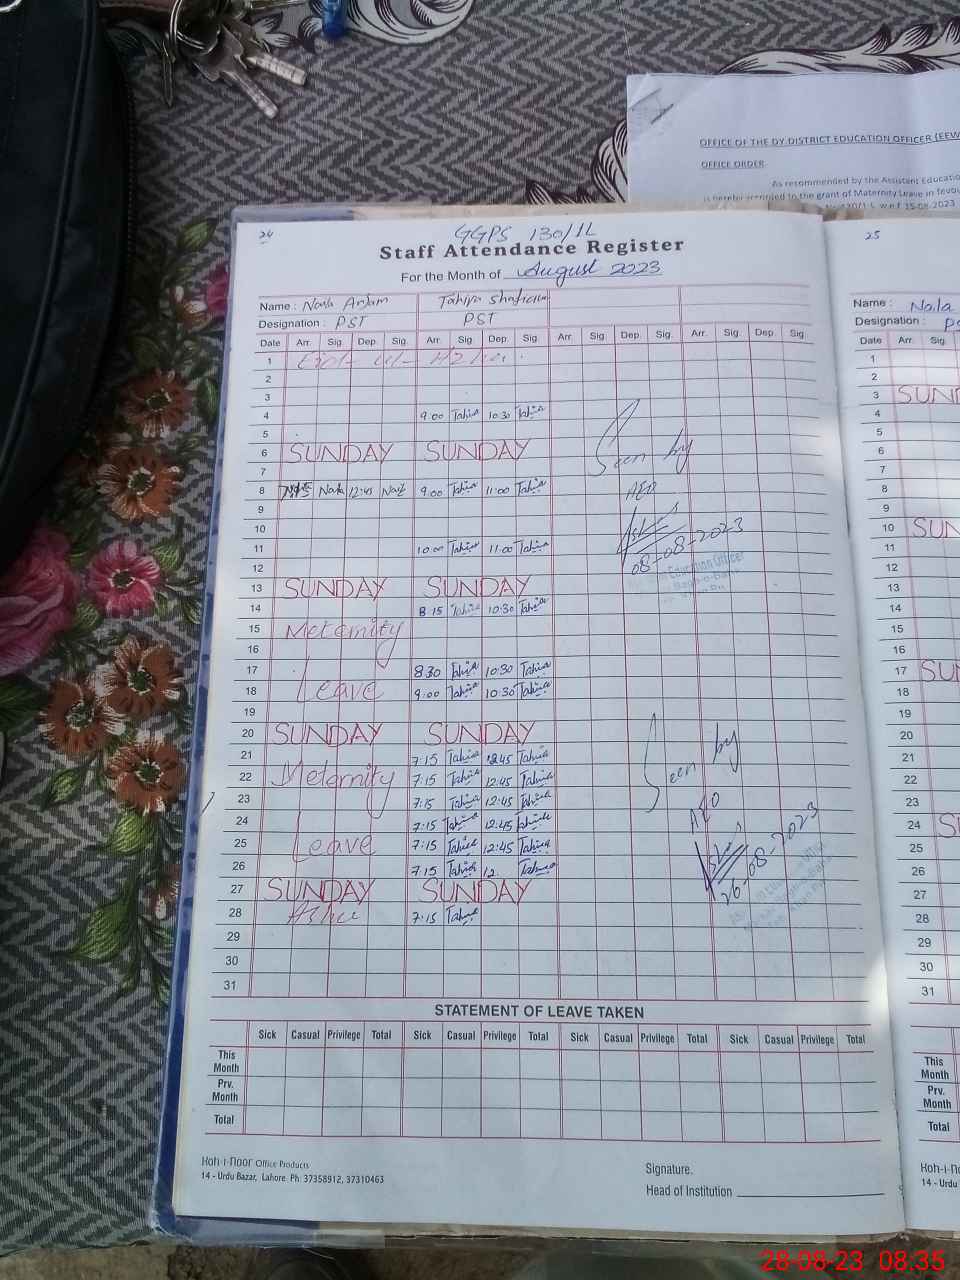 OFFICE OF THE DY DISTRICT EDUCATION OFFICER (EEW
OFFICE ORDER
As recommended by the Assistant Educatio
is hereby accorded to the grant of Maternity Leave in favou
w.e.f 15-08-2023
24
GGPS 130/1L
Staff Attendance Register
For the Month of August 2023
Name : Naila Anjam Tahira
Designation : PST PST
Date Arr. Sig. Dep. Sig. Arr. Sig. Dep. Sig. Arr. Sig. Dep. Sig. Arr. Sig. Dep. Sig.
1
2
3
4 9:00 Tahira 10:30 Tahira
5
6 SUNDAY SUNDAY
7 Seen by
8 Naila 12:45 Naila 9:00 Tahira 11:00 Tahira AEO
9
10 08-08-2023
11 10:00 Tahira 11:00 Tahira
12
13 SUNDAY SUNDAY
14 8:15 Tahira 10:30 Tahira
15 Meternity
16
17 8:30 Tahira 10:30 Tahira
18 Leave 9:00 Tahira 10:30 Tahira
19
20 SUNDAY SUNDAY
21 7:15 Tahira 12:45 Tahira Seen by
22 Meternity 7:15 Tahira 12:45 Tahira
23 7:15 Tahira 12:45 Tahira AEO
24 7:15 Tahira 12:45 Tahira
25 Leave 7:15 Tahira 12:45 Tahira
26 7:15 Tahira 12 Tahira 26-08-2023
27 SUNDAY SUNDAY
28 7:15 Tahira
29
30
31
STATEMENT OF LEAVE TAKEN
Sick Casual Privilege Total Sick Casual Privilege Total Sick Casual Privilege Total Sick Casual Privilege Total
This Month
Prv. Month
Total
Koh-i-noor Office Products
14 - Urdu Bazar, Lahore. Ph: 37358912, 37310463
Signature.
Head of Institution
25
Name : Naila
Designation :
Date Arr. Sig.
1
2
3 SUND
4
5
6
7
8
9
10 SUN
11
12
13
14
15
16
17 SU
18
19
20
21
22
23
24 S
25
26
27
28
29
30
31
This Month
Prv. Month
Total
Koh-i-n
14 - Urdu
28-08-23 08:35